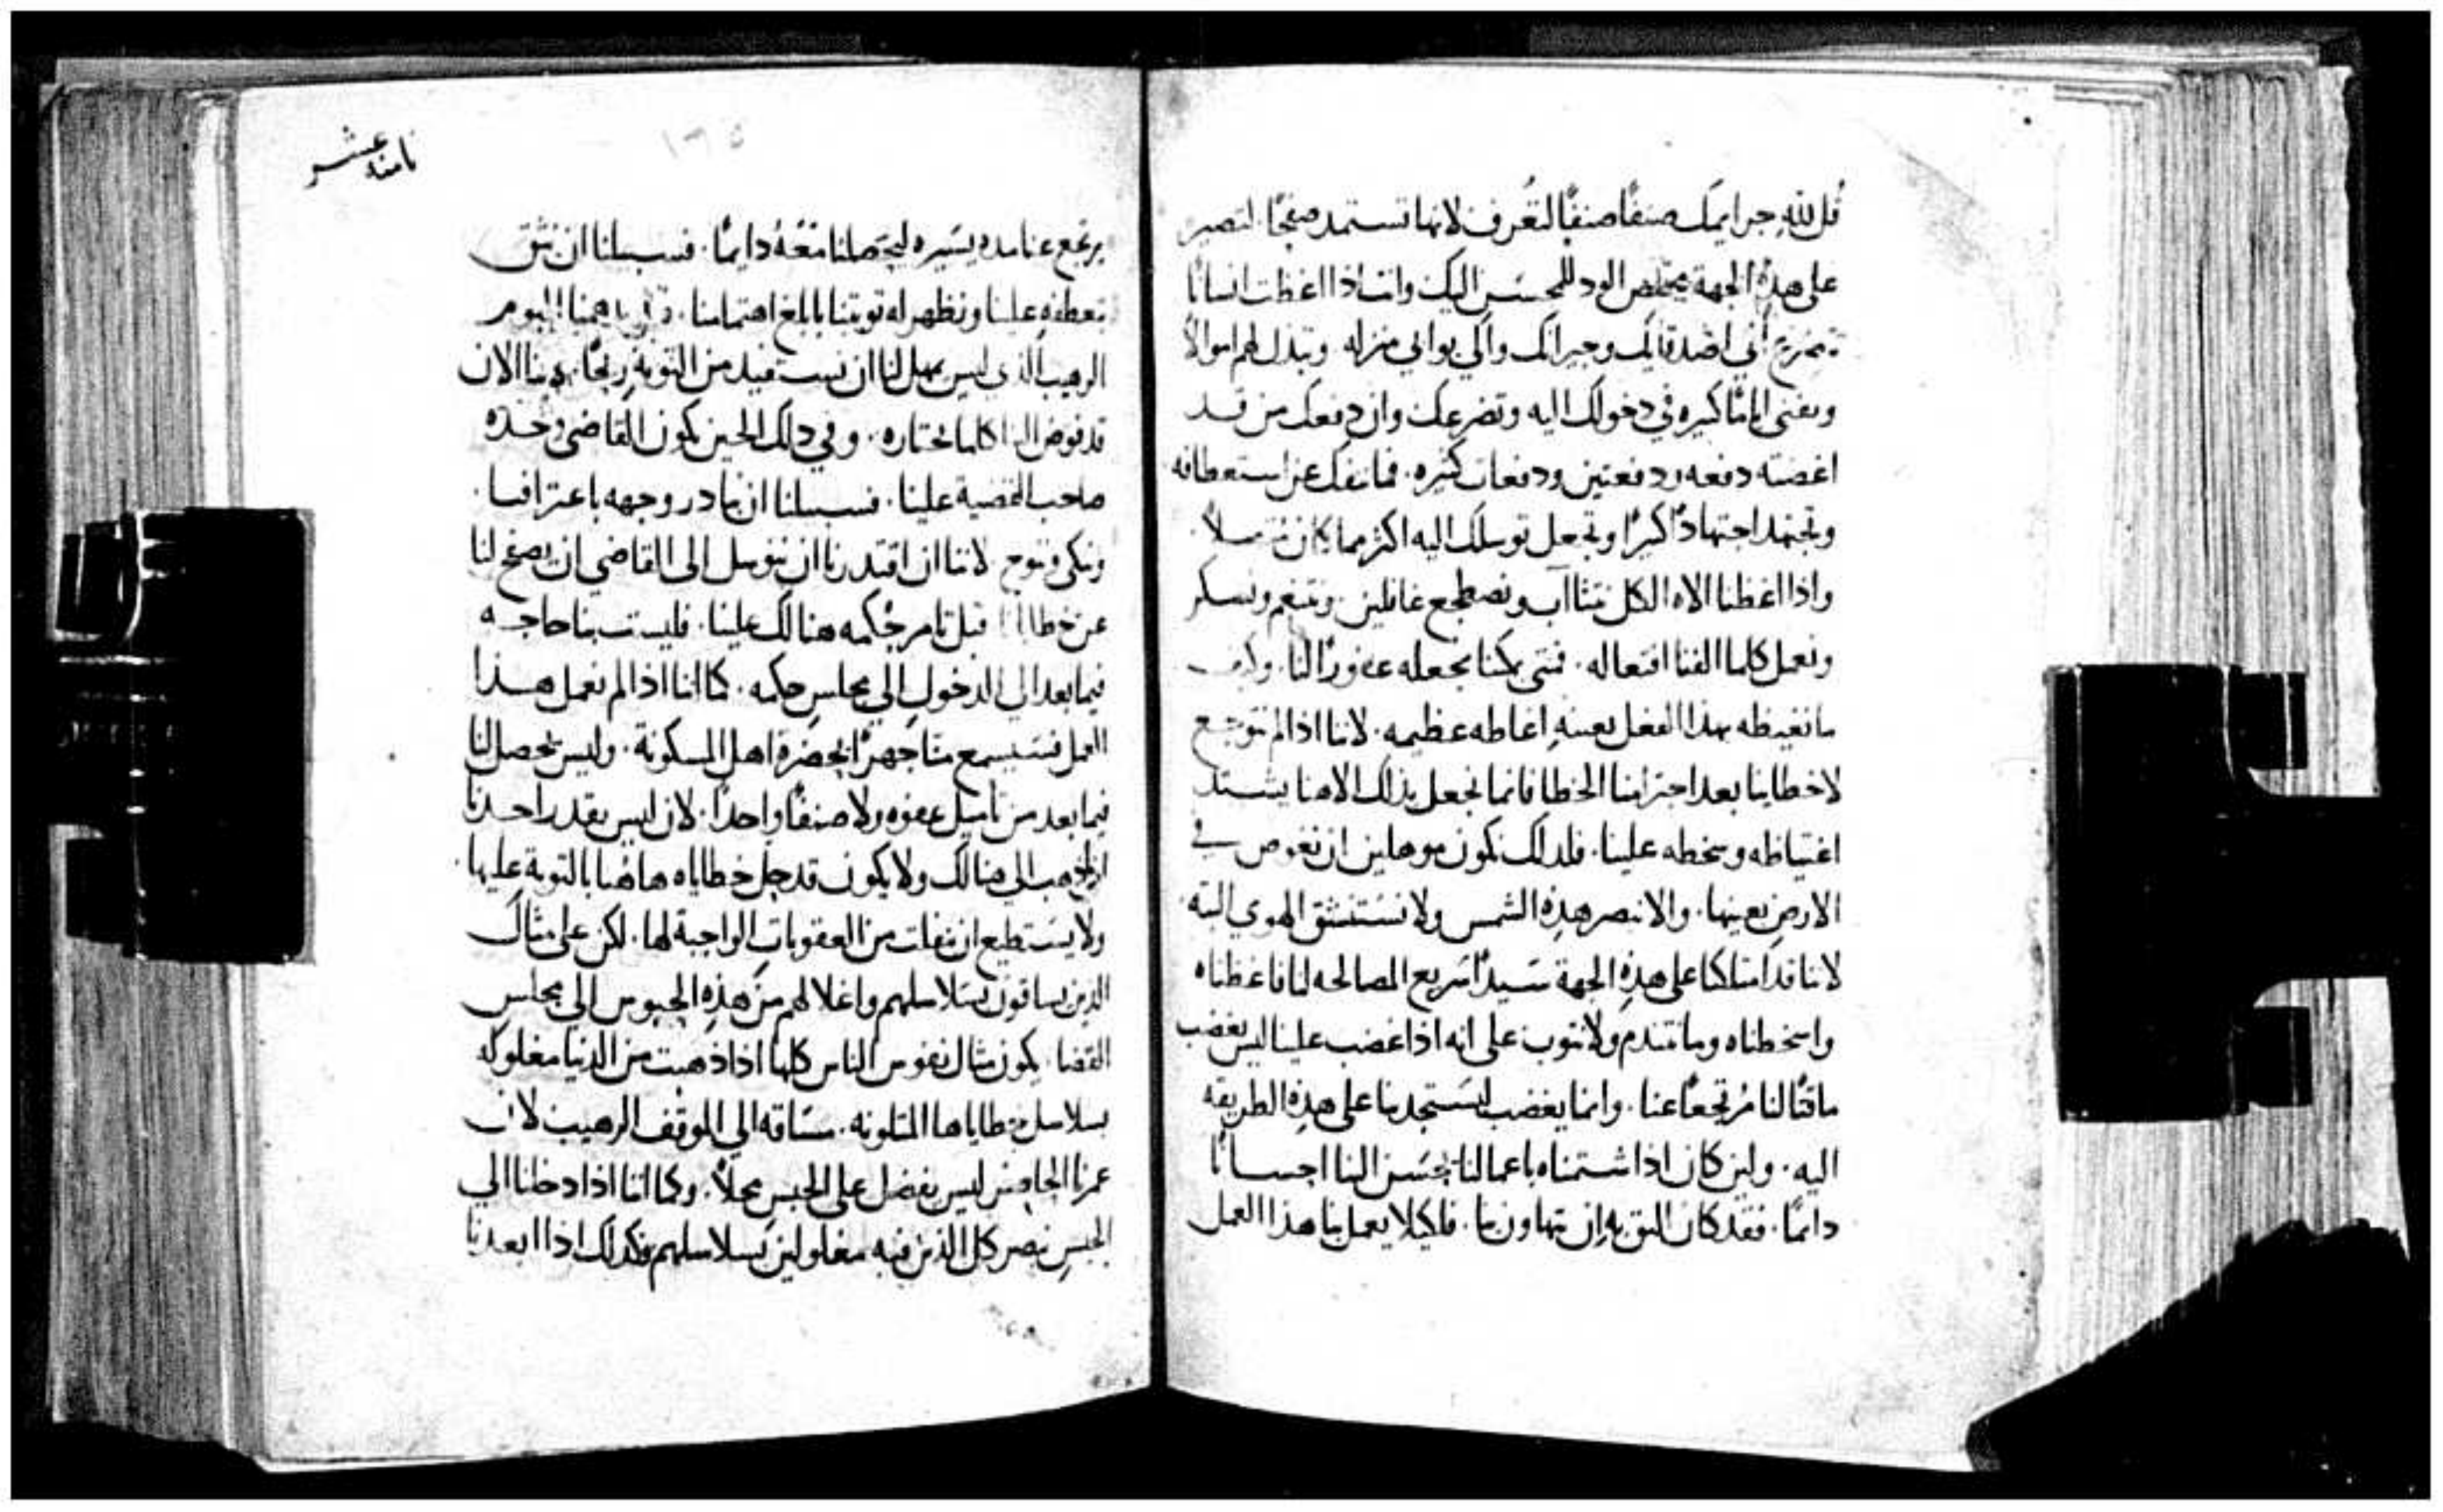 قل لله جرايمك صنفًا صنفًا لتعرف لانها تستمد صفحًا. لتصير
على هذه الجهة مخلص الود للمحسن اليك وانت اذا اغظت انسانًا
اصدقايك وجيرانك والي بوابي منزله وتبذل لهم اموالا
وتفني ايامًا كثيره في دخولك اليه وتضرعك وان دفعك من قد
اغضته دفعه ودفعتين ودفعات كثيره. فما تنفك عن استعطافه
وتجتهد اجتهادًا كبيرًا وتجعل توسلك اليه اكثر مما كان
واذا اغظنا الاه الكل نتثااب ونضطجع غافلين. ونتنعم ونسكر
ونعمل كلما الفنا افتعاله. فمتى يمكنا نجعله غافورًا لنا. وكيف
ما نغيظه بهذا الفعل بعينه اغاظه عظيمه. لاننا اذا لم نتوجع
لاخطاينا بعد اجترامنا الخطا فانما نجعل بذاك الاهنا يشتد
اغتياظه وسخطه علينا. فلذلك نكون موهلين ان نغوص في
الارض بعينها. والا نبصر هذه الشمس ولا نستنشق الهوي البته
لاننا قد امتلكنا على هذه الجهة سيدًا سريع المصالحه لنا فاغظناه
واسخطناه وما نتندم ولا نتوب على انه اذا غضب علينا ليس يغضب
ماقتًا لنا مرتجعًا عنا. وانما يغضب ليستجدبنا على هذه الطريقه
اليه. ولين كان اذا شتمناه باعمالنا يحسن الينا احسانًا
دايمًا. فقد كان اليق به ان يتهاون بنا. فلكيلا يعمل بنا هذا العمل
ثامنه عشر
١٦٥
يرتجع عنا مده يسيره ليجعلنا معه دايمًا. فسبيلنا ان نثق
بتعطفه علينا ونظهر له توبتنا بابلغ اهتمامنا. اليوم
الرهيب الذي ليس يمهل لنا ان نستفيد من التوبة ربحًا. الان
قد فوض الينا كلما نختاره. وفي ذلك الحين يكون القاضي وحده
صاحب القضية علينا. فسبيلنا ان نبادر وجهه باعترافنا.
ونبكي وننوح لاننا ان اقتدرنا ان نتوسل الى القاضي ان يصفح لنا
عن خطايانا قبل تامر حكمه هنالك علينا. فليست بنا حاجه
فيما بعد الى الدخول الى مجلس حكمه. كما اننا اذا لم نعمل هذا
العمل فسيسمع منا جهرًا بحضرة اهل المسكونة. وليس يحصل لنا
فيما بعد من تاميل عفوه ولا صنفًا واحدًا. لان ليس يقدر احدنا
ان يذهب الي هنالك ولا يكون قد حل خطاياه هاهنا بالتوبة عليها.
ولا يستطيع ان يفلت من العقوبات الواجبة لها. لكن على مثال
الذين يساقون بسلاسلهم واغلالهم من هذه الحبوس الى مجلس
القضا. يكون مثال نفوس الناس كلها اذا ذهبت من الدنيا مغلوله
بسلاسل خطاياها المتلونه. مساقه الي الموقف الرهيب لان
عمرنا الحاضر ليس يفضل على الحبس محلاً. وكما اننا اذا دخلنا الي
الحبس نبصر كل الذين فيه مغلولين بسلاسلهم فكذلك اذا ابعدنا